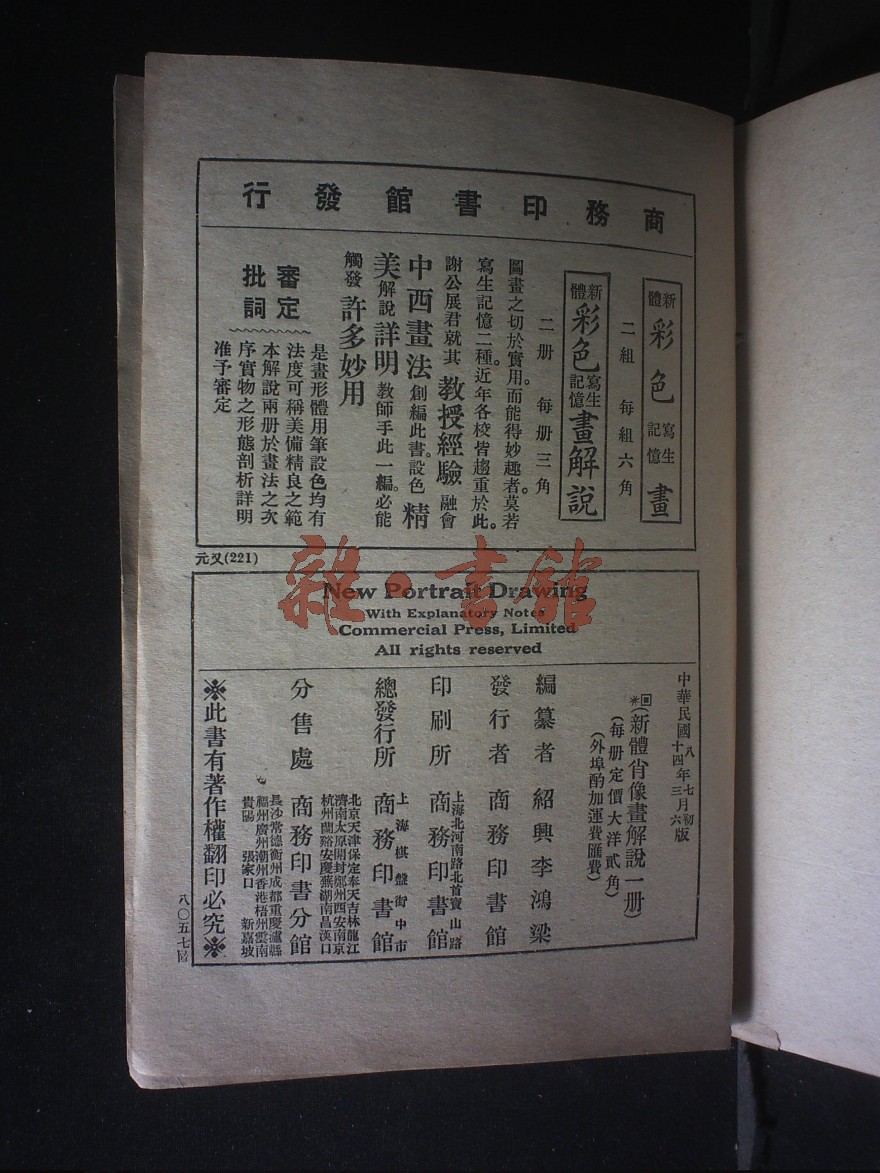 商務印書館發行
新體彩色寫生記憶畫
二組　每組六角
新體彩色寫生記憶畫解說
二册　每册三角
圖畫之切於實用。而能得妙趣者。莫若
寫生記憶二種。近年各校皆趨重於此。
謝公展君就其教授經驗融會
中西畫法創編此書。設色精
美解說詳明教師手此一編。必能
觸發許多妙用
審定
批詞
是畫形體用筆設色均有
法度可稱美備精良之範
本解說兩册於畫法之次
序實物之形態剖析詳明
准予審定
元又(221)
雜·書館
New Portrait Drawing
With Explanatory Notes
Commercial Press, Limited
All rights reserved
中華民國八年七月初版
十四年三月六版
(新體肖像畫解說一册)
(每册定價大洋貳角)
(外埠酌加運費匯費)
編纂者　紹興李鴻梁
發行者　商務印書館
印刷所　上海北河南路北首寶山路　商務印書館
總發行所　上海棋盤街中市　商務印書館
分售處　商務印書分館
北京天津保定奉天吉林龍江
濟南太原開封鄭州西安南京
杭州蘭谿安慶蕪湖南昌漢口
長沙常德衡州成都重慶瀘縣
福州廣州潮州香港梧州雲南
貴陽　張家口　新嘉坡
※此書有著作權翻印必究※
八〇五七